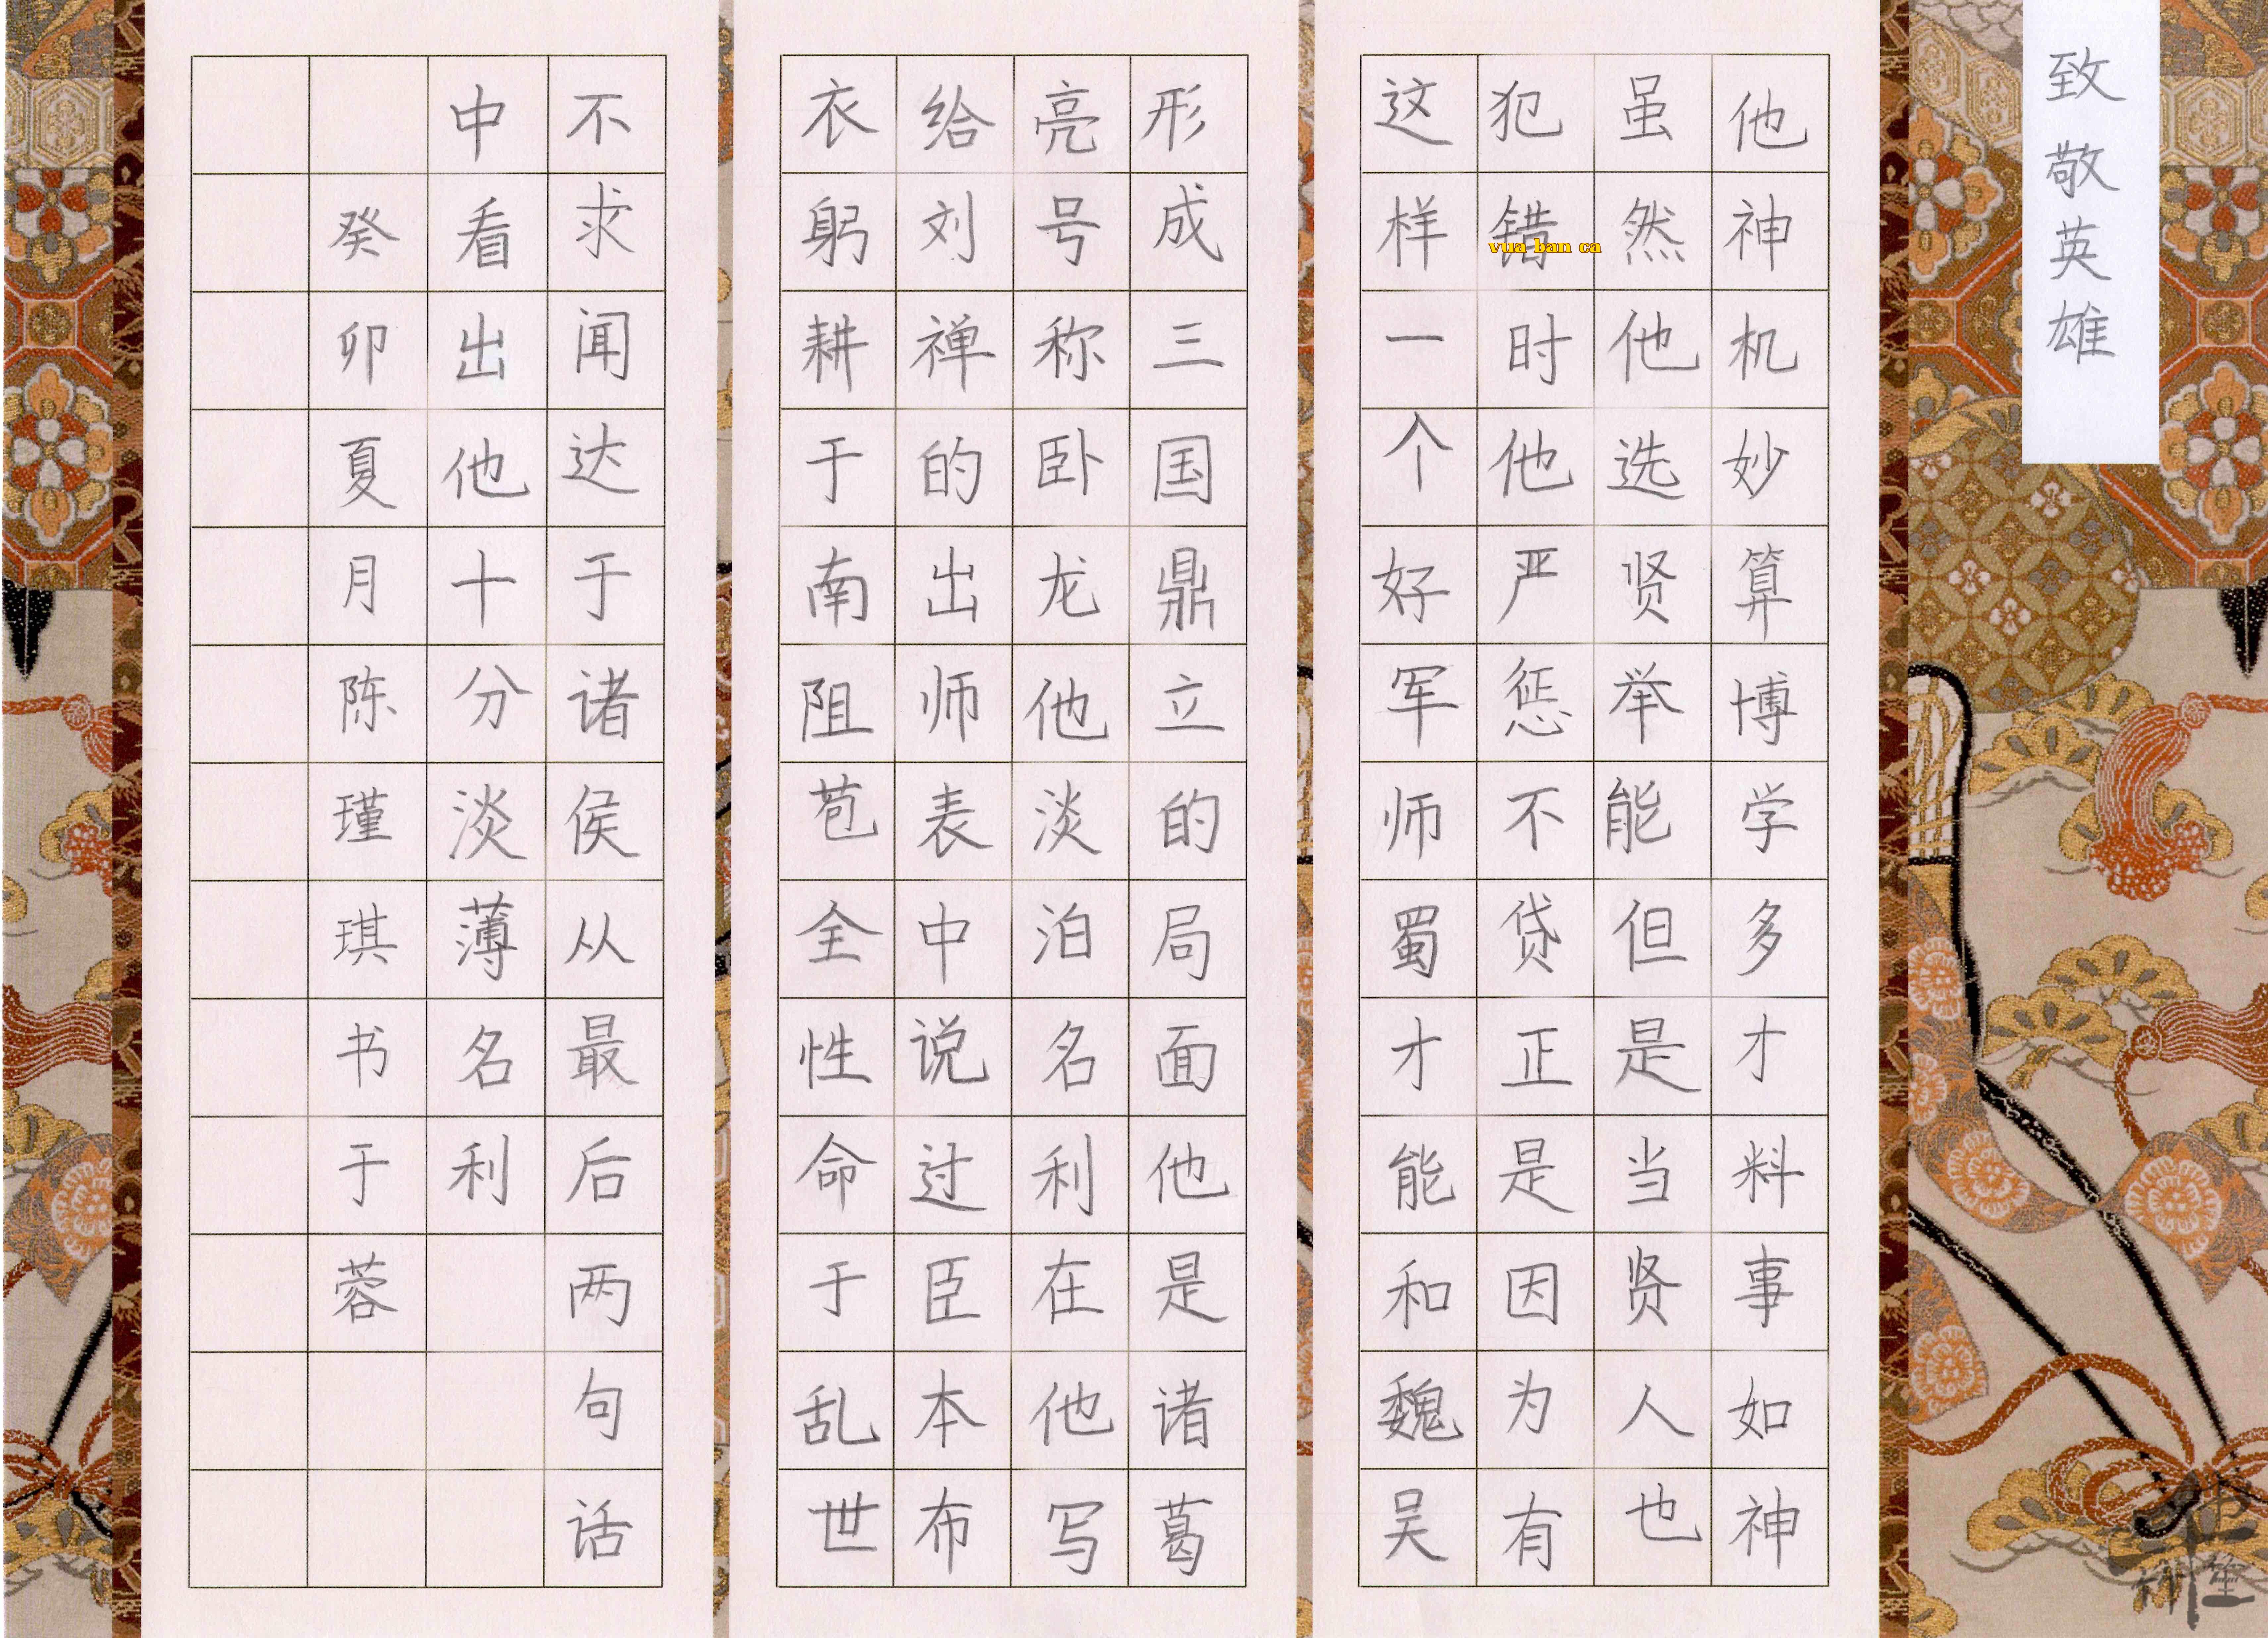 致敬英雄
他神机妙算博学多才料事如神
虽然他选贤举能但是当贤人也
犯错时他严惩不贷正是因为有
这样一个好军师蜀才能和魏吴
形成三国鼎立的局面他是诸葛
亮号称卧龙他淡泊名利在他写
给刘禅的出师表中说过臣本布
衣躬耕于南阻苞全性命于乱世
不求闻达于诸侯从最后两句话
中看出他十分淡薄名利
癸卯夏月陈瑾琪书于蓉
vua ban ca